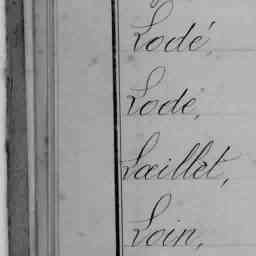 Lodé,
Lodé,
Lœillet,
Loin,